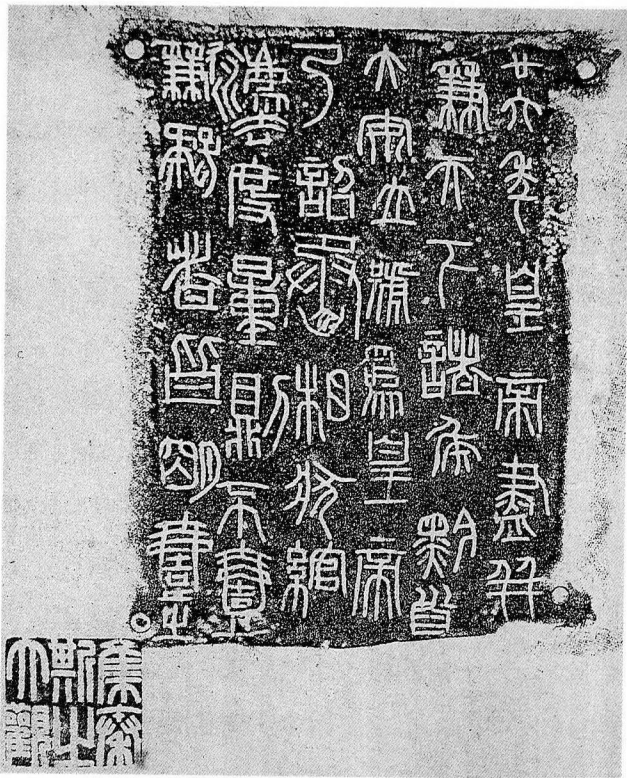 廿六年皇帝盡并
兼天下諸侯黔首
大安立號為皇帝
乃詔丞相狀綰
灋度量則不壹
歉疑者皆明壹之
集秦
斯之
大觀